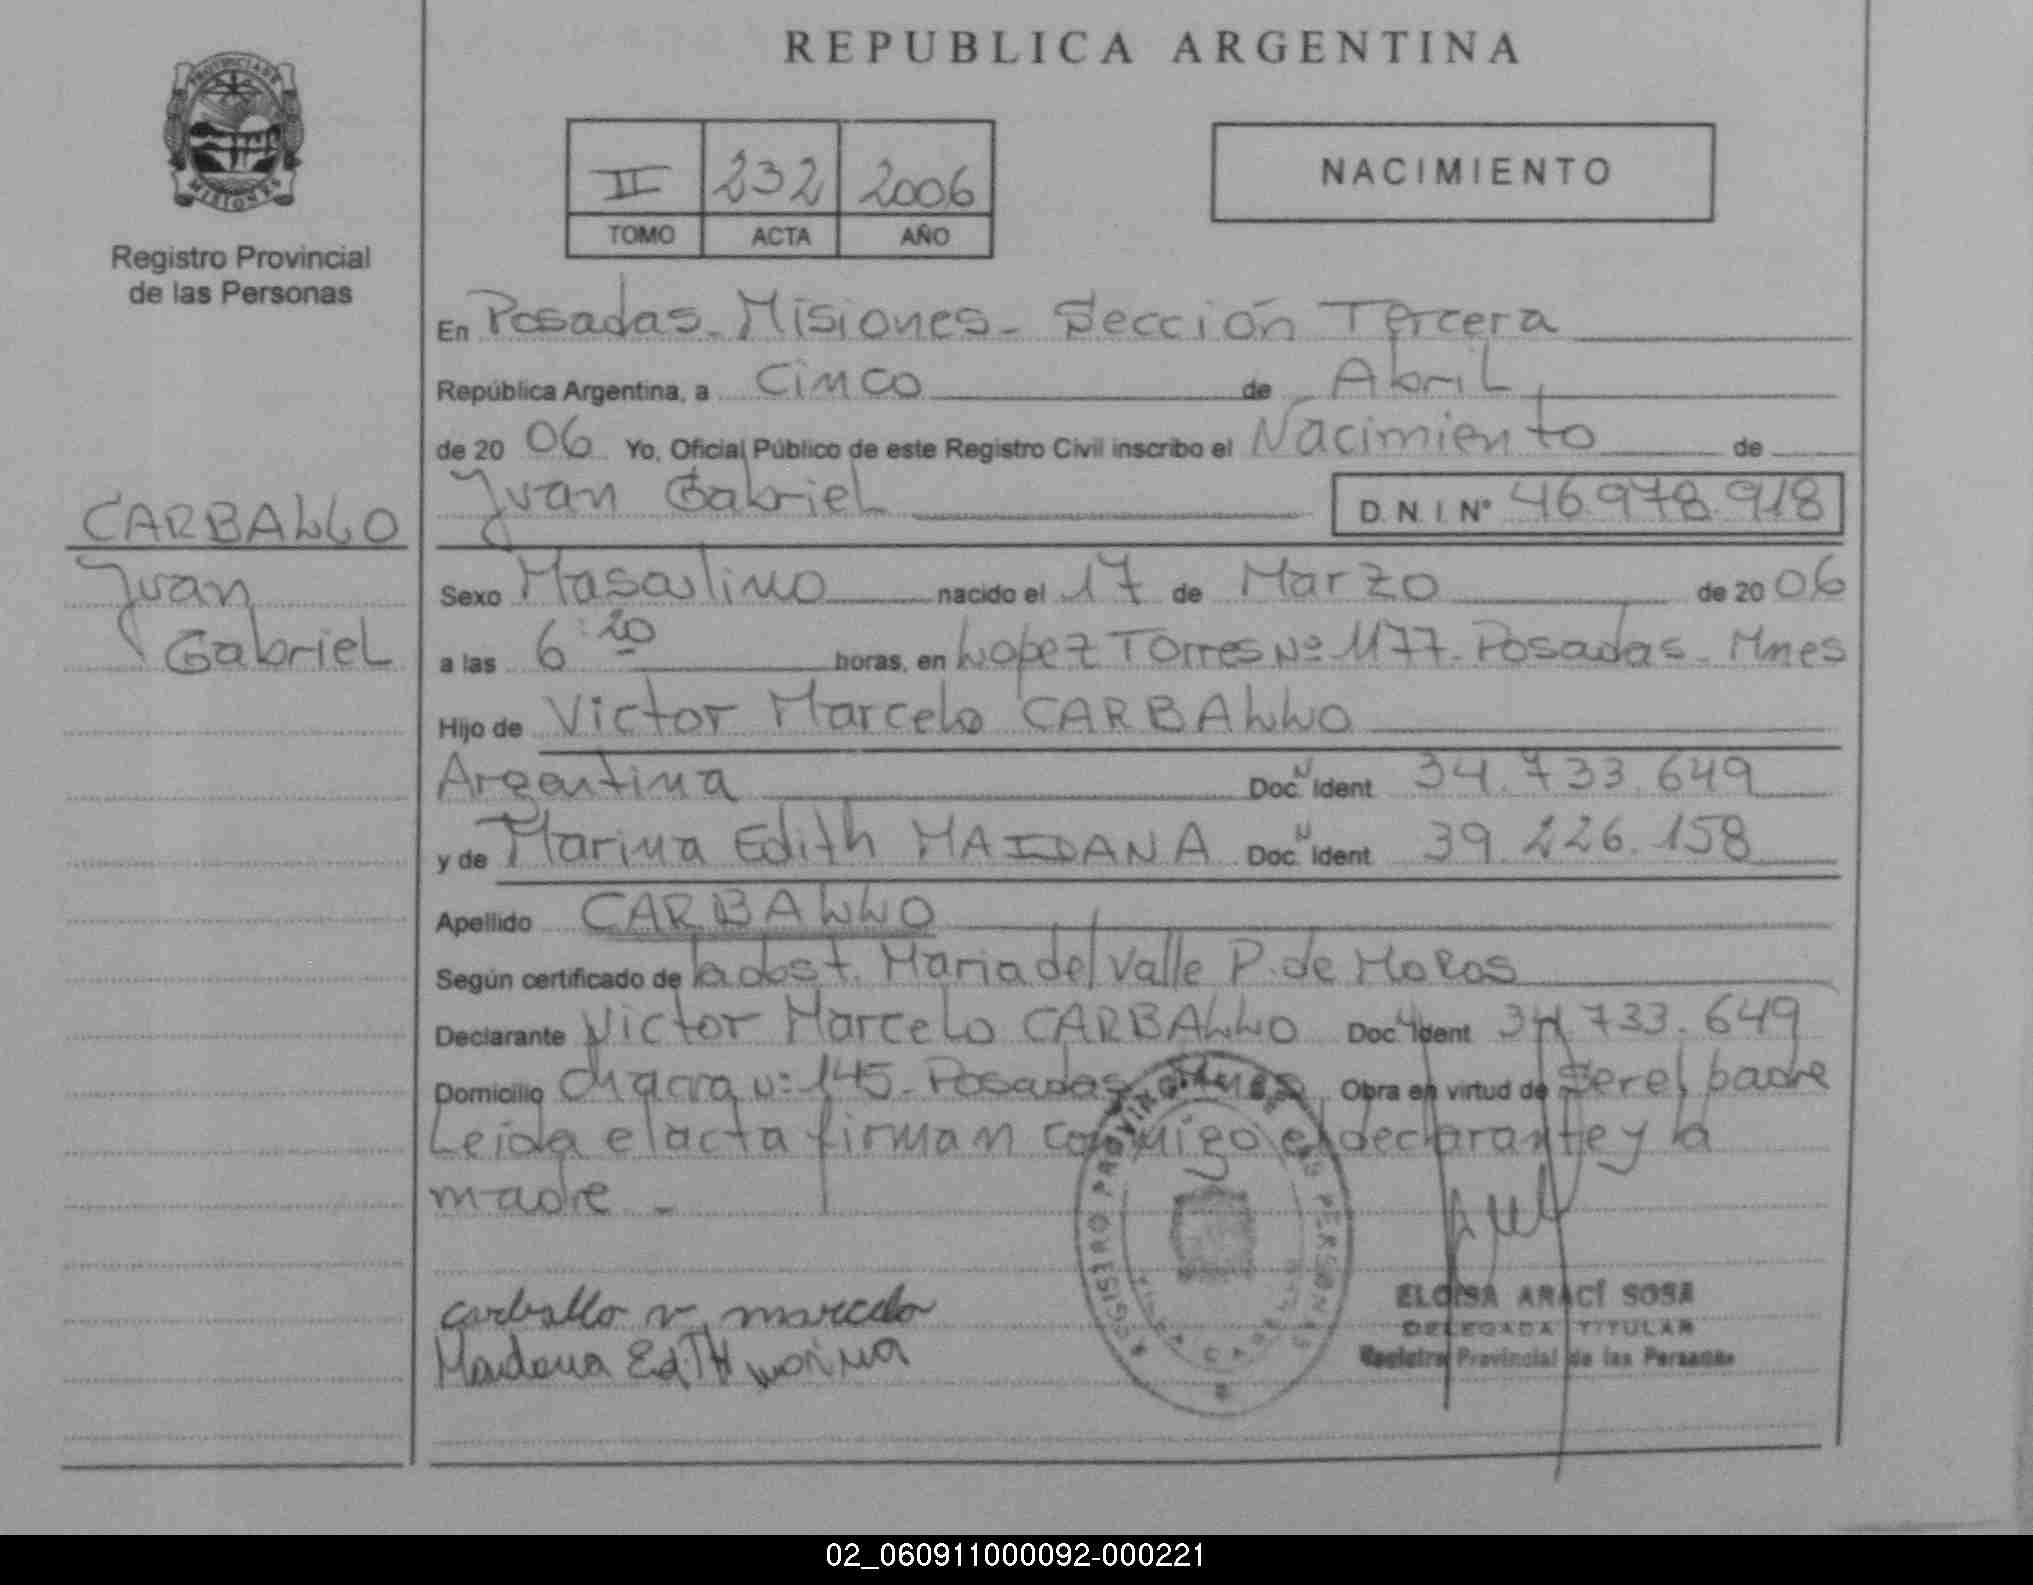 PROVINCIA DE
MISIONES
Registro Provincial
de las Personas
CARBALLO
Ivan
Gabriel
REPUBLICA ARGENTINA
II 232 2006
TOMO ACTA AÑO
NACIMIENTO
En Posadas - Misiones - Sección Tercera
República Argentina, a Cinco de Abril
de 20 06 Yo, Oficial Público de este Registro Civil inscribo el Nacimiento de
Ivan Gabriel D.N.I. Nº 46.978.918
Sexo Masculino nacido el 17 de Marzo de 20 06
a las 6:20 horas, en Lopez Torres Nº 1177 - Posadas - Mnes
Hijo de Victor Marcelo CARBALLO
Argentina Doc. N Ident 34.733.649
y de Marina Edith MAIDANA Doc. N Ident 39.226.158
Apellido CARBALLO
Según certificado de la obst. Maria del Valle P. de Moros
Declarante Victor Marcelo CARBALLO Doc. Ident 34.733.649
Domicilio Chacra nº 145 - Posadas - Mnes Obra en virtud de ser el padre
Leída el acta firman conmigo el declarante y la
madre -
carballo v. marcelo
Maidana EdiTH marina
REGISTRO PROVINCIAL DE LAS PERSONAS
ELOISA ARACÍ SOSA
DELEGADA TITULAR
Registro Provincial de las Personas
02_060911000092-000221